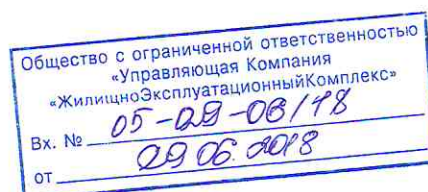 Общество с ограниченной ответственностью
«Управляющая Компания
«ЖилищноЭксплуатационныйКомплекс»
Вх. № 05-29-06/18
от 29 06. 2018